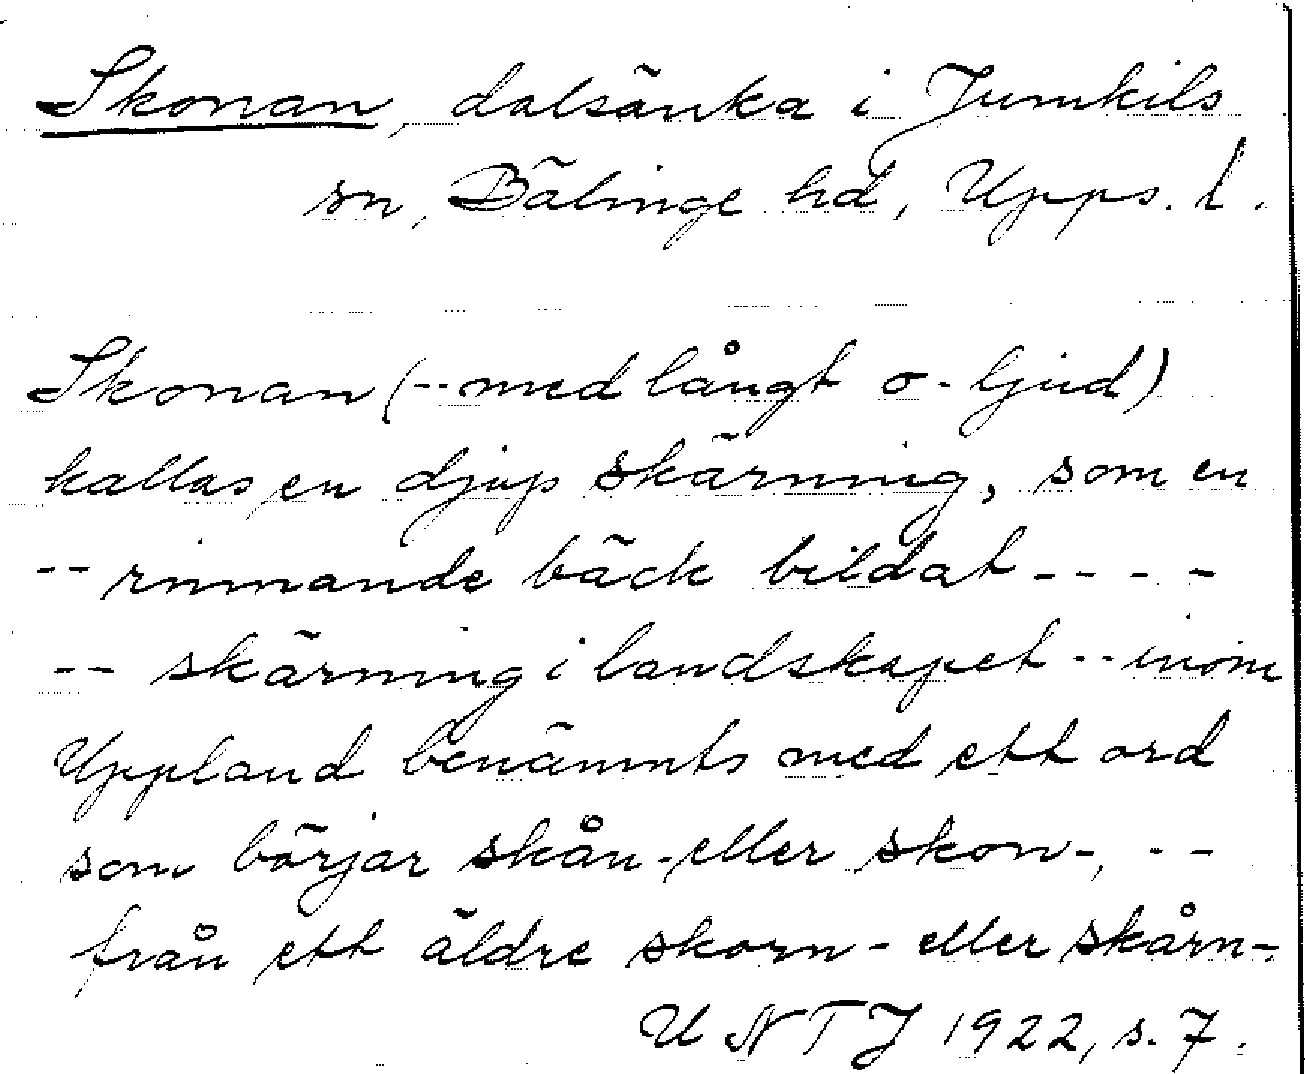 Skonan, dalsänka i Jumkils
sn, Bälinge hd, Upps. l.
Skonan (-- med långt o-ljud)
kallas en djup skärning, som en
-- rinnande bäck bildat - - - -
-- skärning i landskapet -- inom
Uppland benämnts med ett ord
som börjar skån- eller skon-, --
från ett äldre skorn- eller skårn-.
UNTJ 1922, s. 7.